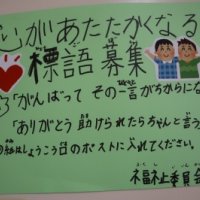 心があたたかくなる
標語募集
「がんばって その一言がちからにな
「ありがとう 助けられたらちゃんと言う
の紙はしょうこう口のポストに入れてください。
福祉委員会